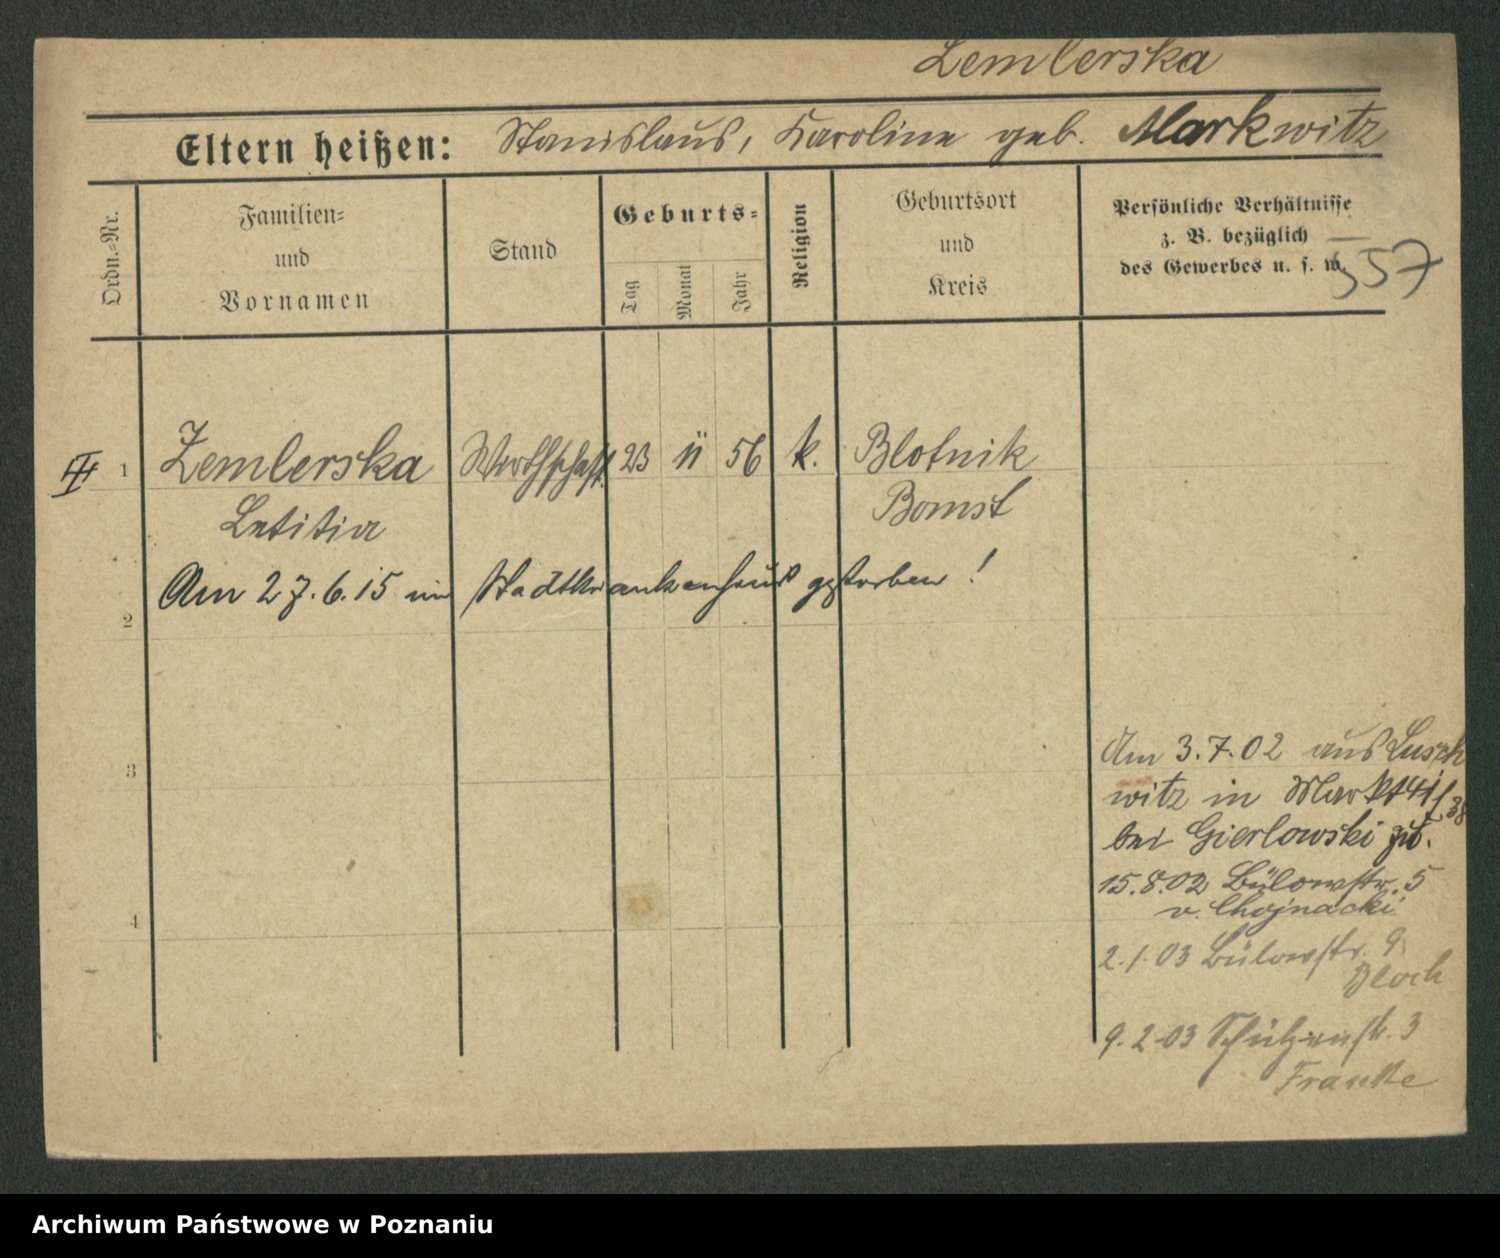 Zemlerska
Eltern heißen: Stanislaus, Karoline geb. Markwitz
Ordn.=Nr.
Familien=
und
Vornamen
Stand
Geburts=
Tag
Monat
Jahr
Religion
Geburtsort
und
Kreis
Persönliche Verhältnisse
z. B. bezüglich
des Gewerbes u. s. w.
557
III 1 Zemlerska Wirthschaft. 23 11 56 k. Blotnik
Letitia Bomst
Am 27.6.15 im Stadtkrankenhaus gestorben!
2
3
4
Am 3.7.02 aus Lusch
witz in Markt 41
bei Gierlowski
15.8.02 Bülowstr. 5
v. Chojnacki
2.1.03 Bülowstr. 9
Bloch
9.2.03 Schützenstr. 3
Franke
Archiwum Państwowe w Poznaniu